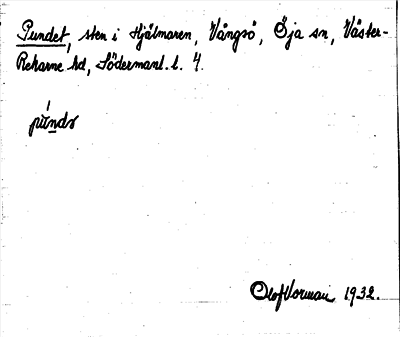 Pundet, sten i Hjälmaren, Vångsö, Öja sn, Väster-
Rekarne hd, Södermanl. l. 4.
Olof Norman 1932.